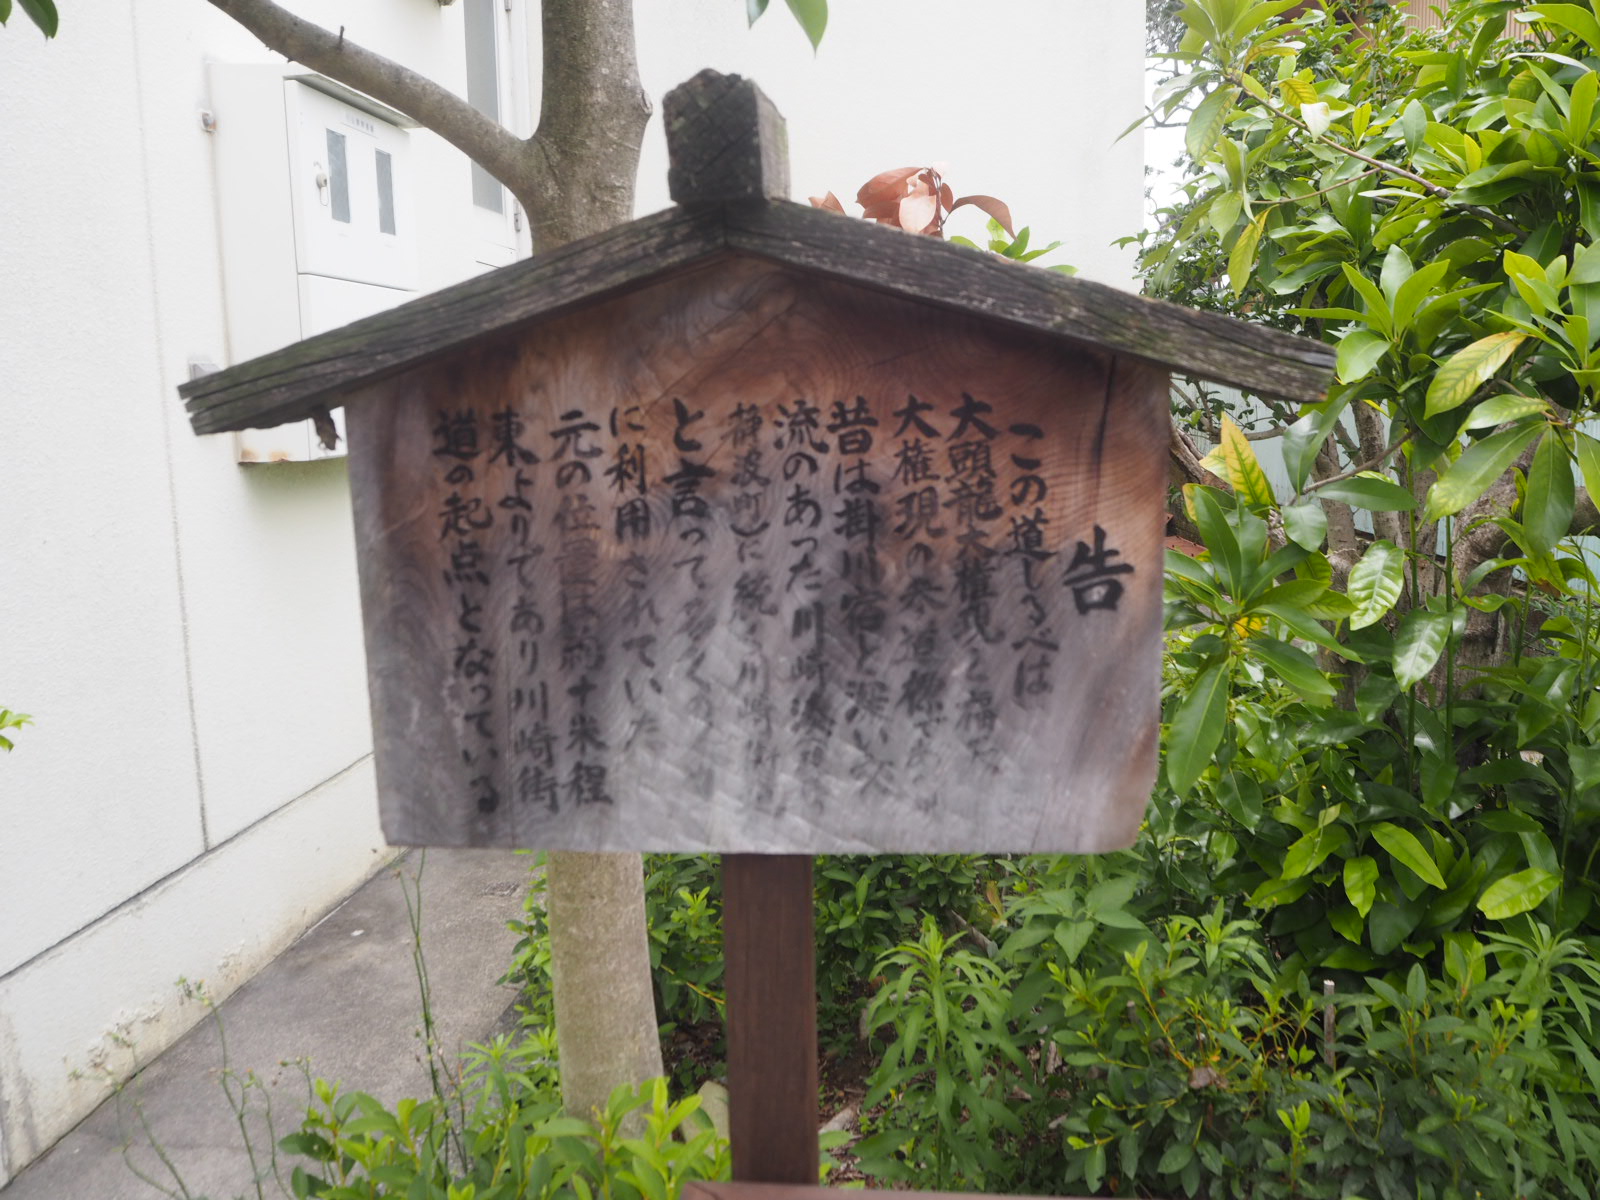 告
この道しるべは
大頭龍大権現と福天
大権現の参道標であり
昔は掛川宿と深い交
流のあった川崎湊
静波町)に続く川崎街道
と言って多くの
に利用されていた
元の位置は約十米程
東よりであり川崎街
道の起点となっている